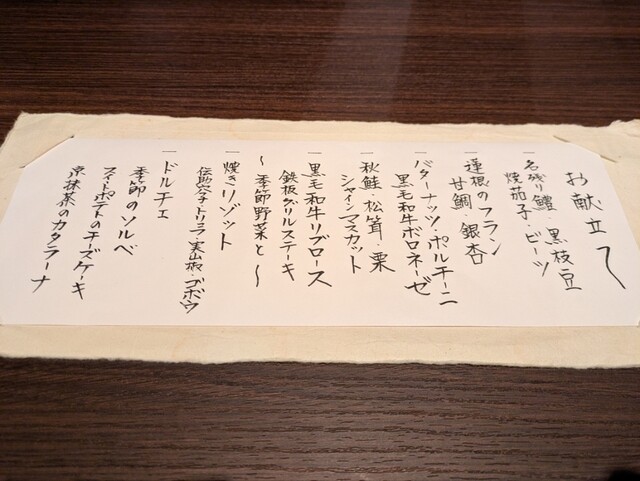 お献立て
一 名残り鱧・黒枝豆
焼茄子・ビーツ
一 蓮根のフラン
甘鯛・銀杏
一 バターナッツ・ポルチーニ
黒毛和牛ボロネーゼ
一 秋鮭・松茸・栗
シャインマスカット
一 黒毛和牛リブロース
鉄板グリルステーキ
〜季節野菜と〜
一 焼きリゾット
伝助穴子・トリュフ・実山椒・ゴボウ
一 ドルチェ
季節のソルベ
スイートポテトのチーズケーキ
京抹茶のカタラーナ